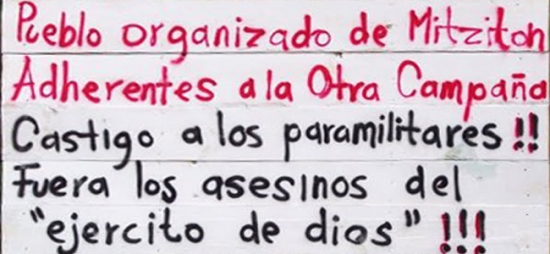 Pueblo organizado de Mitziton
Adherentes a la Otra Campaña
Castigo a los paramilitares!!
Fuera los asesinos del
"ejercito de dios"!!!